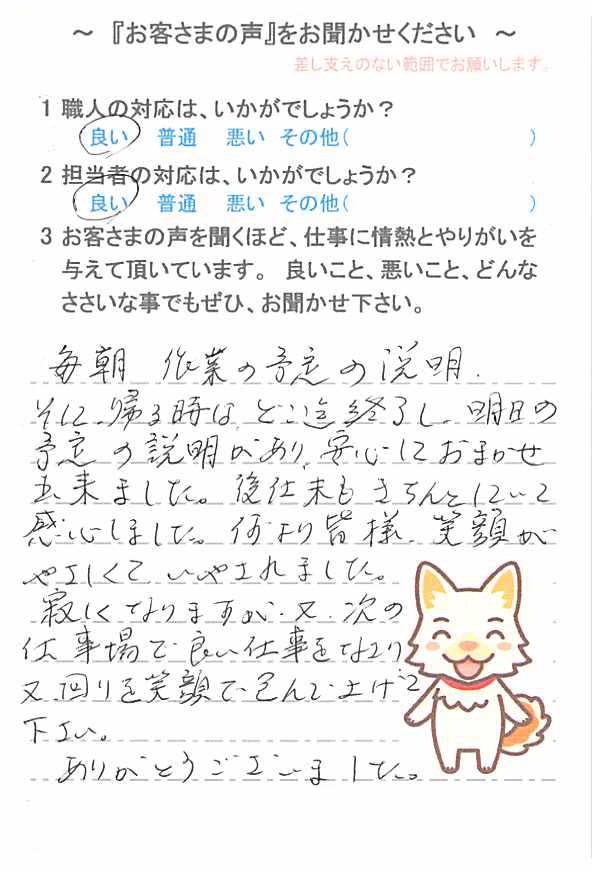 ～ 『お客さまの声』をお聞かせください ～
差し支えのない範囲でお願いします。
1 職人の対応は、いかがでしょうか？
良い 普通 悪い その他( )
2 担当者の対応は、いかがでしょうか？
良い 普通 悪い その他( )
3 お客さまの声を聞くほど、仕事に情熱とやりがいを
与えて頂いています。 良いこと、悪いこと、どんな
ささいな事でもぜひ、お聞かせ下さい。
毎朝 作業の予定の説明、
そして、帰る時は、どこ迄終了し、明日の
予定の説明があり、安心しておまかせ
出来ました。後仕末もきちんとしていて
感心しました。何より皆様、笑顔が
やさしくて、いやされました。
寂しくなりますが、又、次の
仕事場で、良い仕事をなさり
又、回りを笑顔で包んで上げて
下さい。
ありがとうございました。